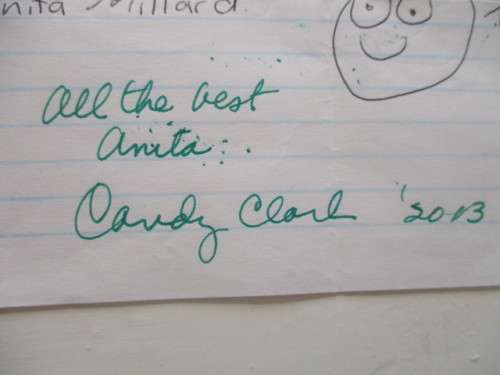 Anita Millard.
All the best
Anita
Candy Clark '2013